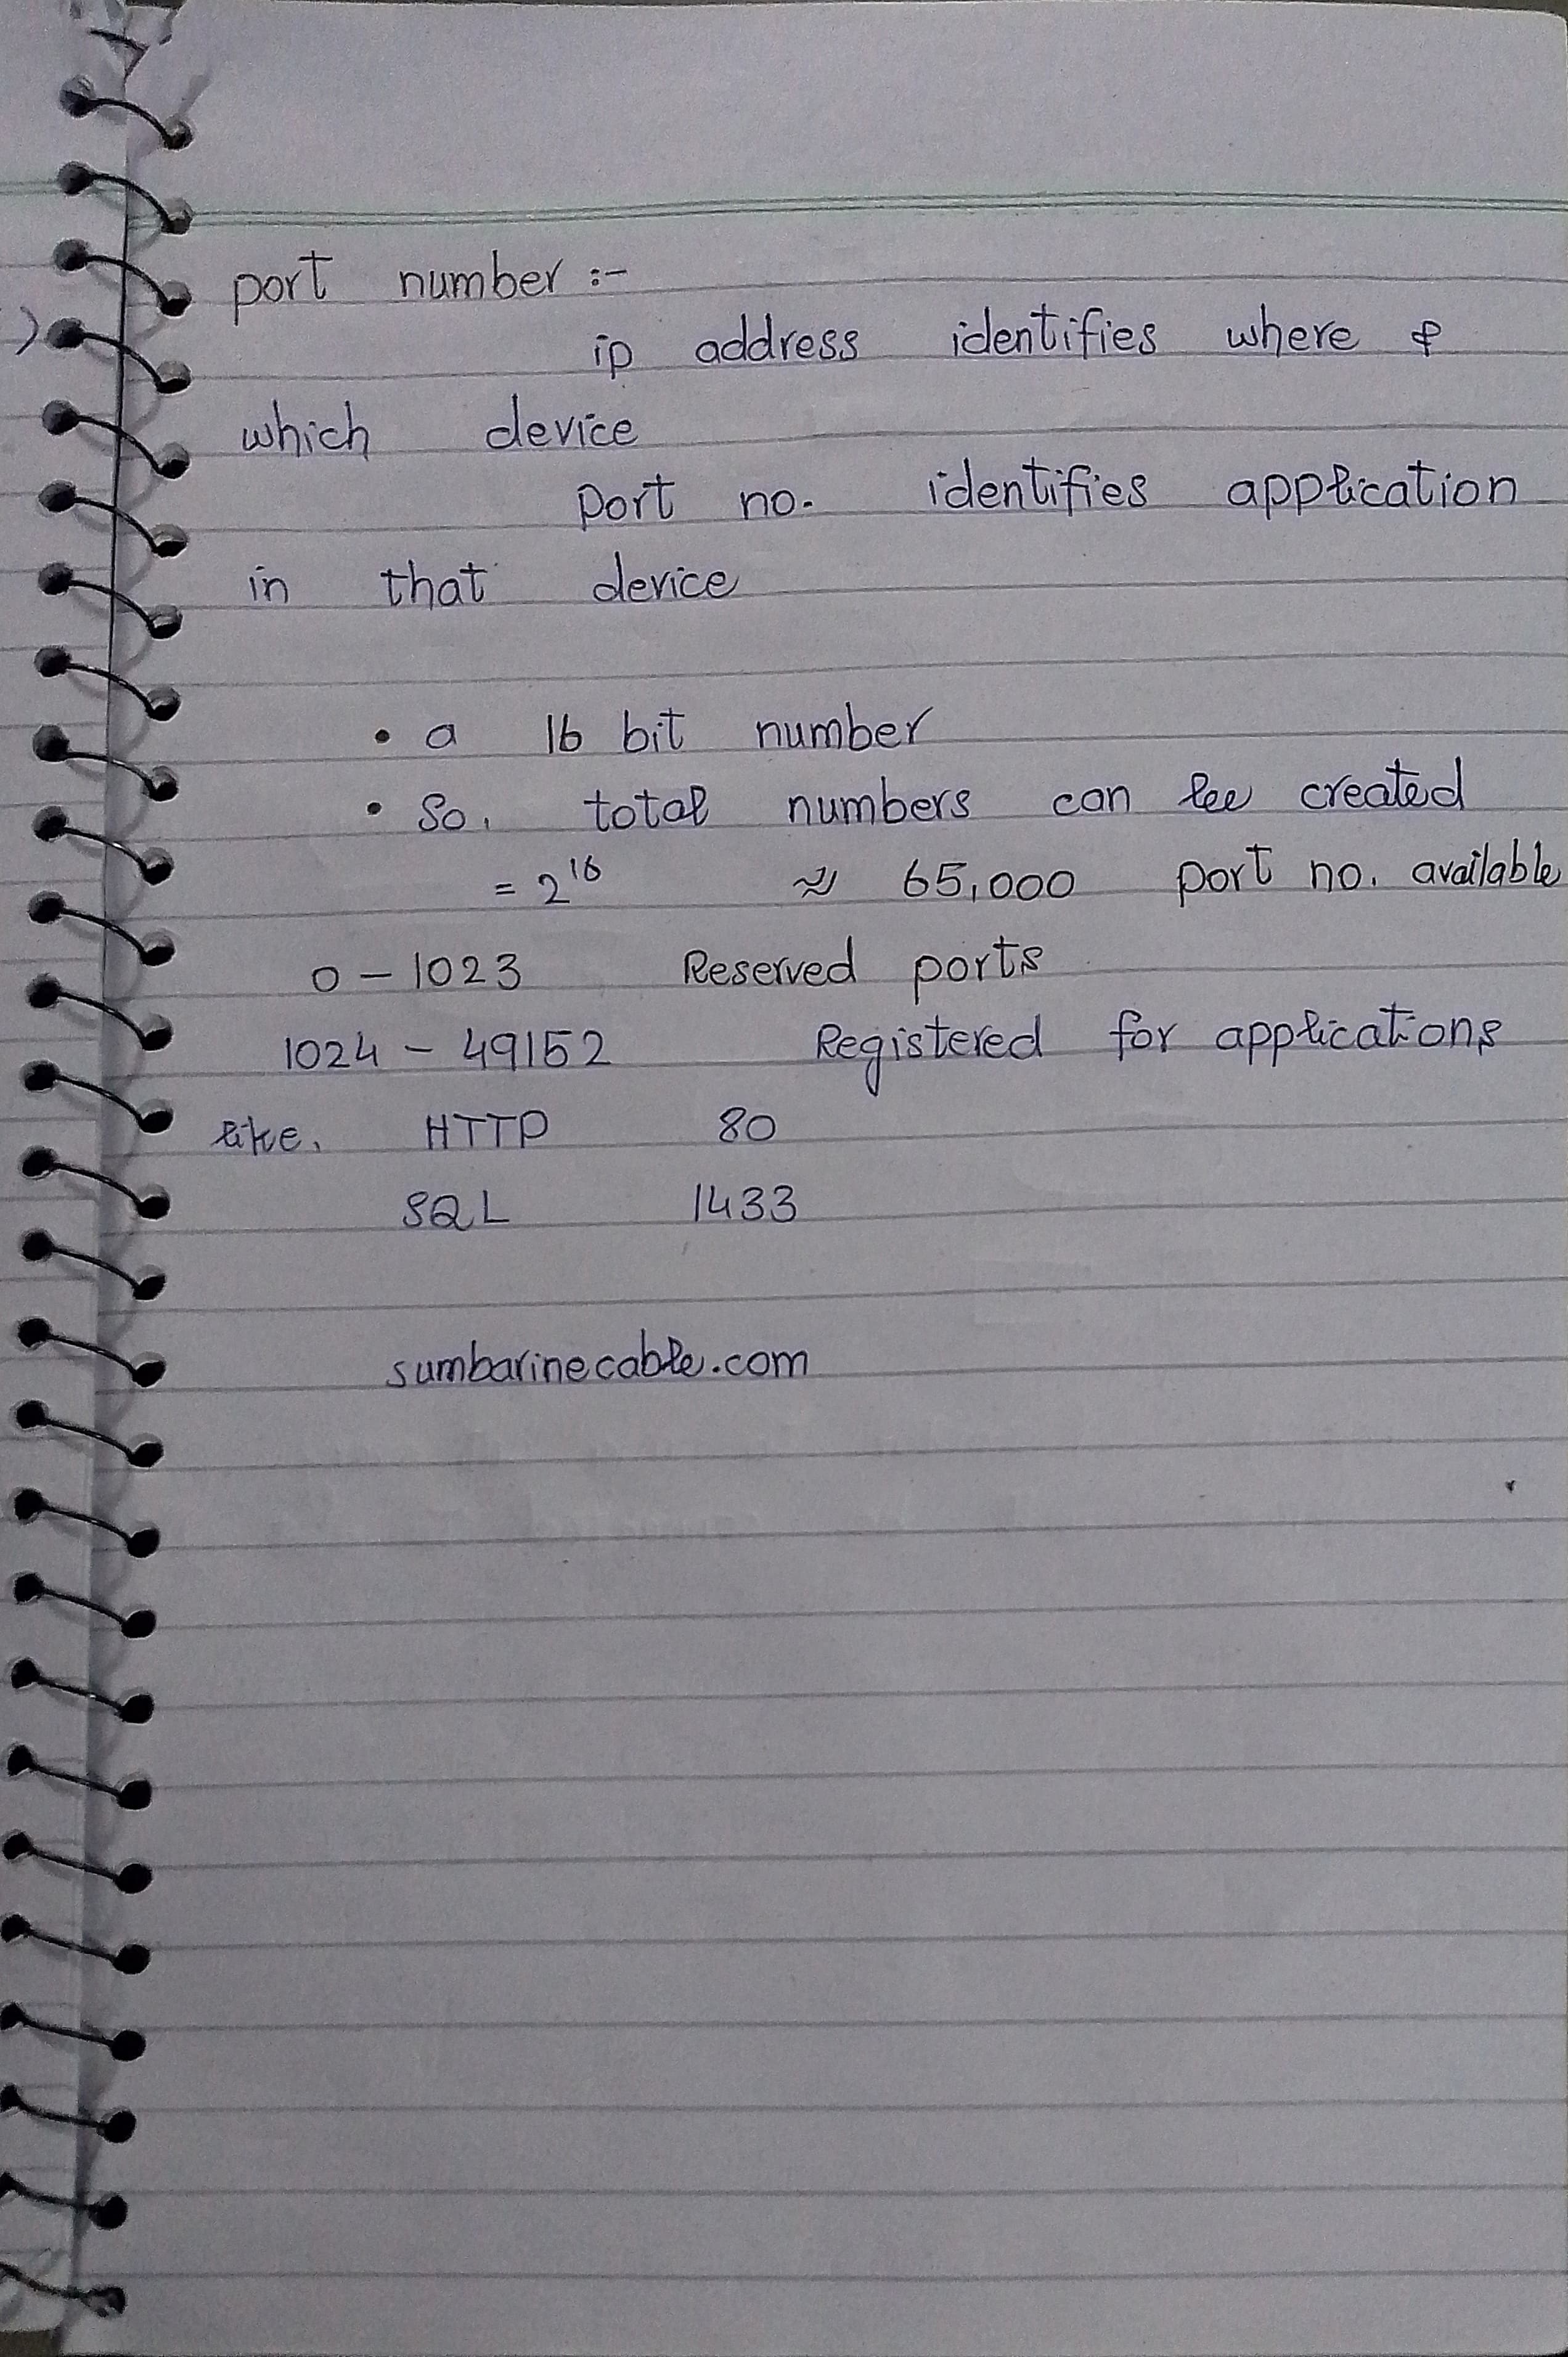 port number :-
ip address identifies where &
which device
port no. identifies application
in that device
• a 16 bit number
• So, total numbers can be created
= 2^16 ≈ 65,000 port no. available
0 - 1023 Reserved ports
1024 - 49152 Registered for applications
like, HTTP 80
SQL 1433
sumbarinecable.com